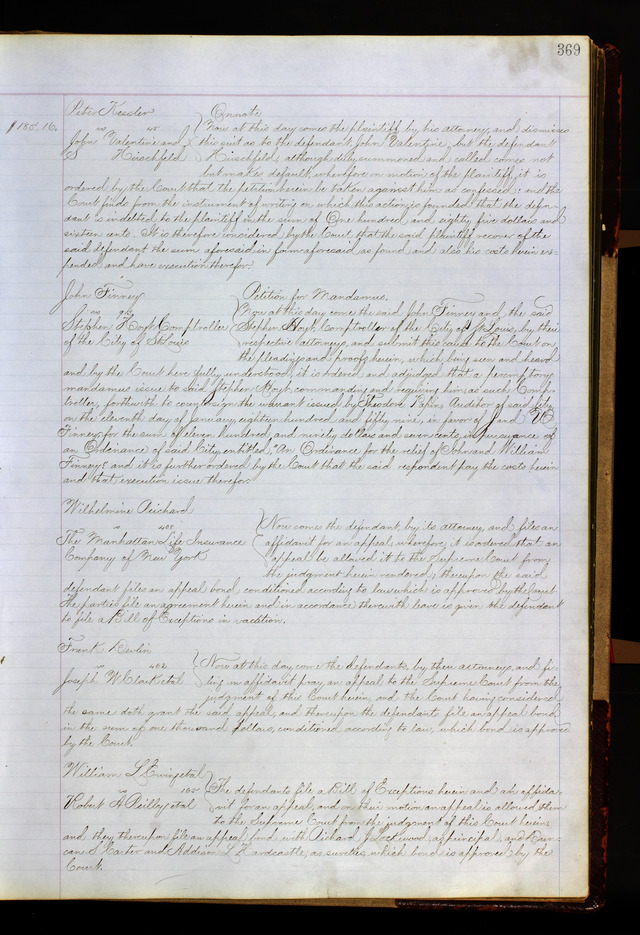 369
Peter Kessler } On note
$185.16. vs 45 Now at this day comes the plaintiff by his attorney, and dismisses
John Valentine and the suit as to the defendant John Valentine, but the defendant
S Hirschfeld Hirschfeld, although duly summoned and called comes not
but makes default, wherefore on motion of the plaintiff, it is
ordered by the Court that the petition herein be taken against him as confessed; and the
Court finds from the instrument of writing on which the action is founded that the defen-
dant is indebted to the plaintiff in the sum of One hundred and eighty five dollars and
sixteen cents. It is therefore considered by the Court that the said plaintiff recover of the
said defendant the sum aforesaid in form aforesaid, as found and also his costs herein ex-
pended and have execution therefor.
John Finney } Petition for Mandamus.
vs Now at this day come the said John Finney and the said
Stephen Hoyt Comptroller Stephen Hoyt Comptroller of the City of St Louis, by their
of the City of St Louis respective attorneys, and submit this cause to the Court on
the pleadings and proofs herein, which being seen and heard
and by the Court here fully understood, it is ordered and adjudged that a peremptory
mandamus issue to said Stephen Hoyt commanding and requiring him as such Comp-
troller, forthwith to countersign the warrant issued by Theodore Papin, Auditor of said City
on the eleventh day of January, eighteen hundred and fifty nine, in favor of J and W
Finney, for the sum of eleven hundred, and ninety dollars and seven cents, in pursuance of
an Ordinance of said City entitled, "An Ordinance for the relief of John and William
Finney" and it is further ordered by the Court that the said respondent pay the costs herein
and that execution issue therefor.
Wilhelmine Reichard
vs 408 } Now comes the defendant, by its attorney, and files an
The Manhattan Life Insurance affidavit for an appeal, wherefore, it is ordered that an
Company of New York appeal be allowed it to the Supreme Court from
the judgment herein rendered; thereupon the said
defendant files an appeal bond, conditioned according to law which is approved by the Court
the parties file an agreement herein and in accordance therewith leave is given the defendant
to file a Bill of Exceptions in vacation.
Frank Devlin
vs 402 } Now at this day, come the defendants, by their attorneys, and fi-
Joseph W Clark et al ling an affidavit pray an appeal to the Supreme Court from the
judgment of this Court herein, and the Court having considered
the same doth grant the said appeal, and thereupon the defendants file an appeal bond
in the sum of one thousand dollars, conditioned according to law, which bond is approved
by the Court.
William L Ewing et al
vs 105 } The defendants file a Bill of Exceptions herein and an affida-
Robert A Reilly et al vit for an appeal, and on their motion an appeal is allowed them
to the Supreme Court from the judgment of this Court herein
and they thereupon file an appeal bond with Richard J Lockwood, as principal, and Dun-
can S Carter and Addison L Hardcastle, as sureties, which bond is approved by the
Court.